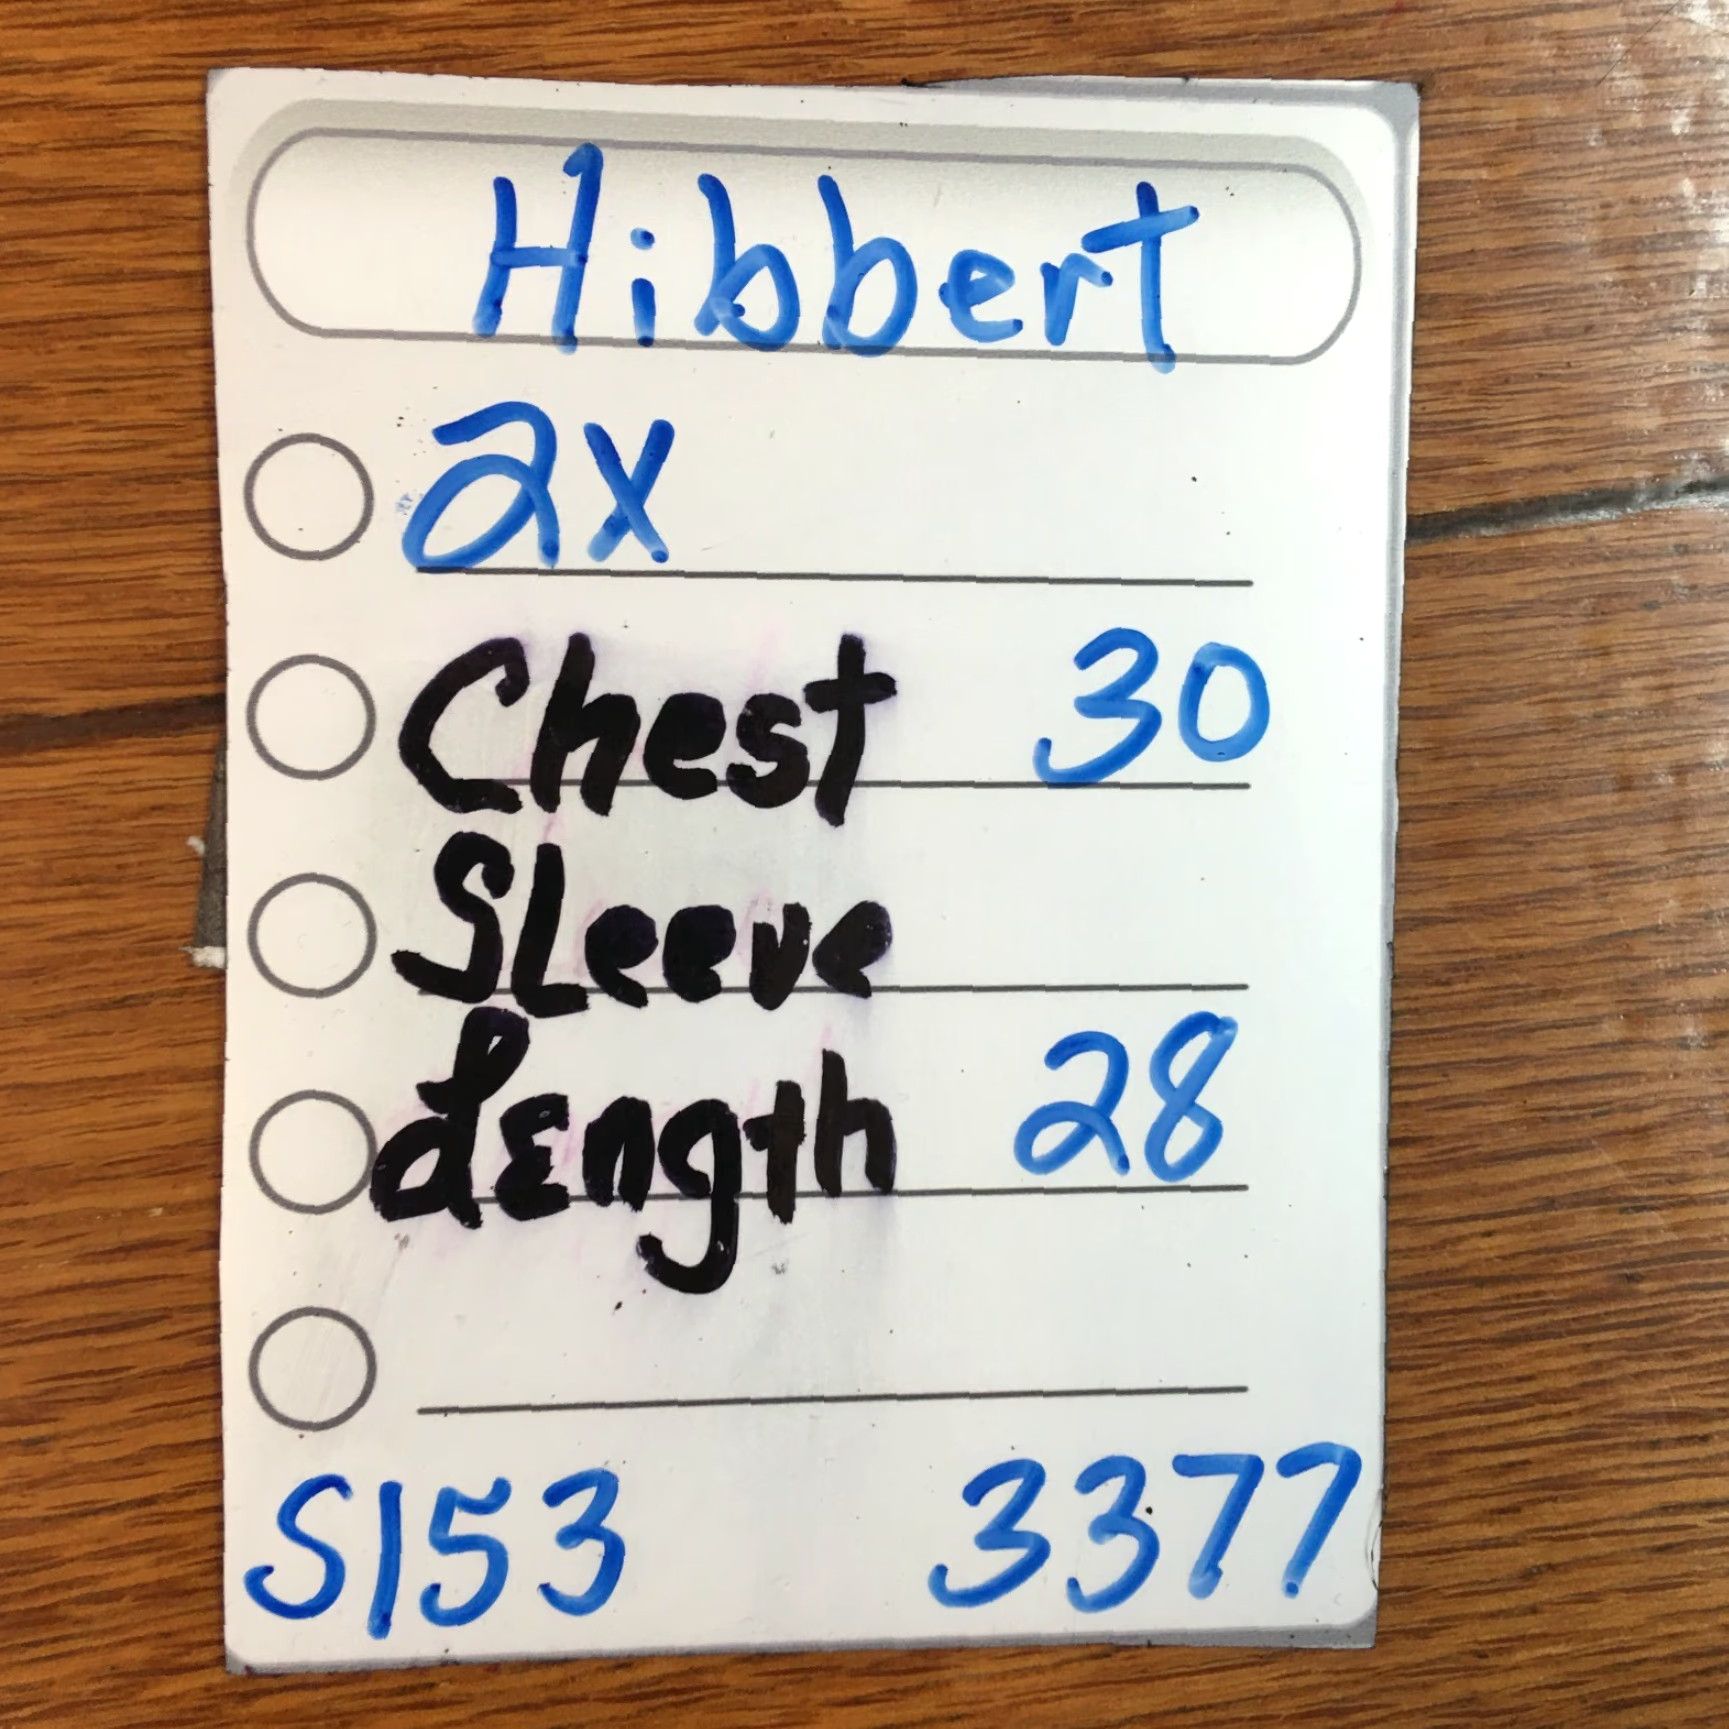 Hibbert
2x
Chest 30
SLeeve
Length 28
S153 3377